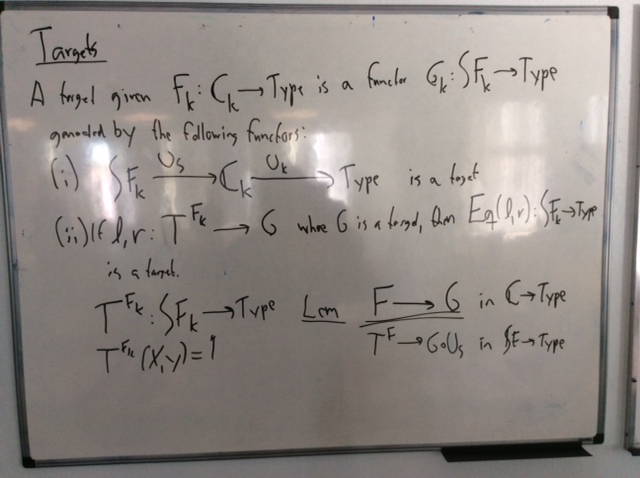 Targets
A target given Fₖ : ℂₖ → Type is a functor Gₖ : ∫Fₖ → Type
generated by the following functors:
(i) ∫Fₖ —Us→ ℂₖ —Uₖ→ Type is a target
(ii) If l,r : T^Fₖ → G where G is a target, then Eq(l,r) : ∫Fₖ → Type
is a target.
T^Fₖ : ∫Fₖ → Type
T^Fₖ (X,y) = 1
Lem F → G in ℂ → Type
T^F → G∘Us in ∫F → Type